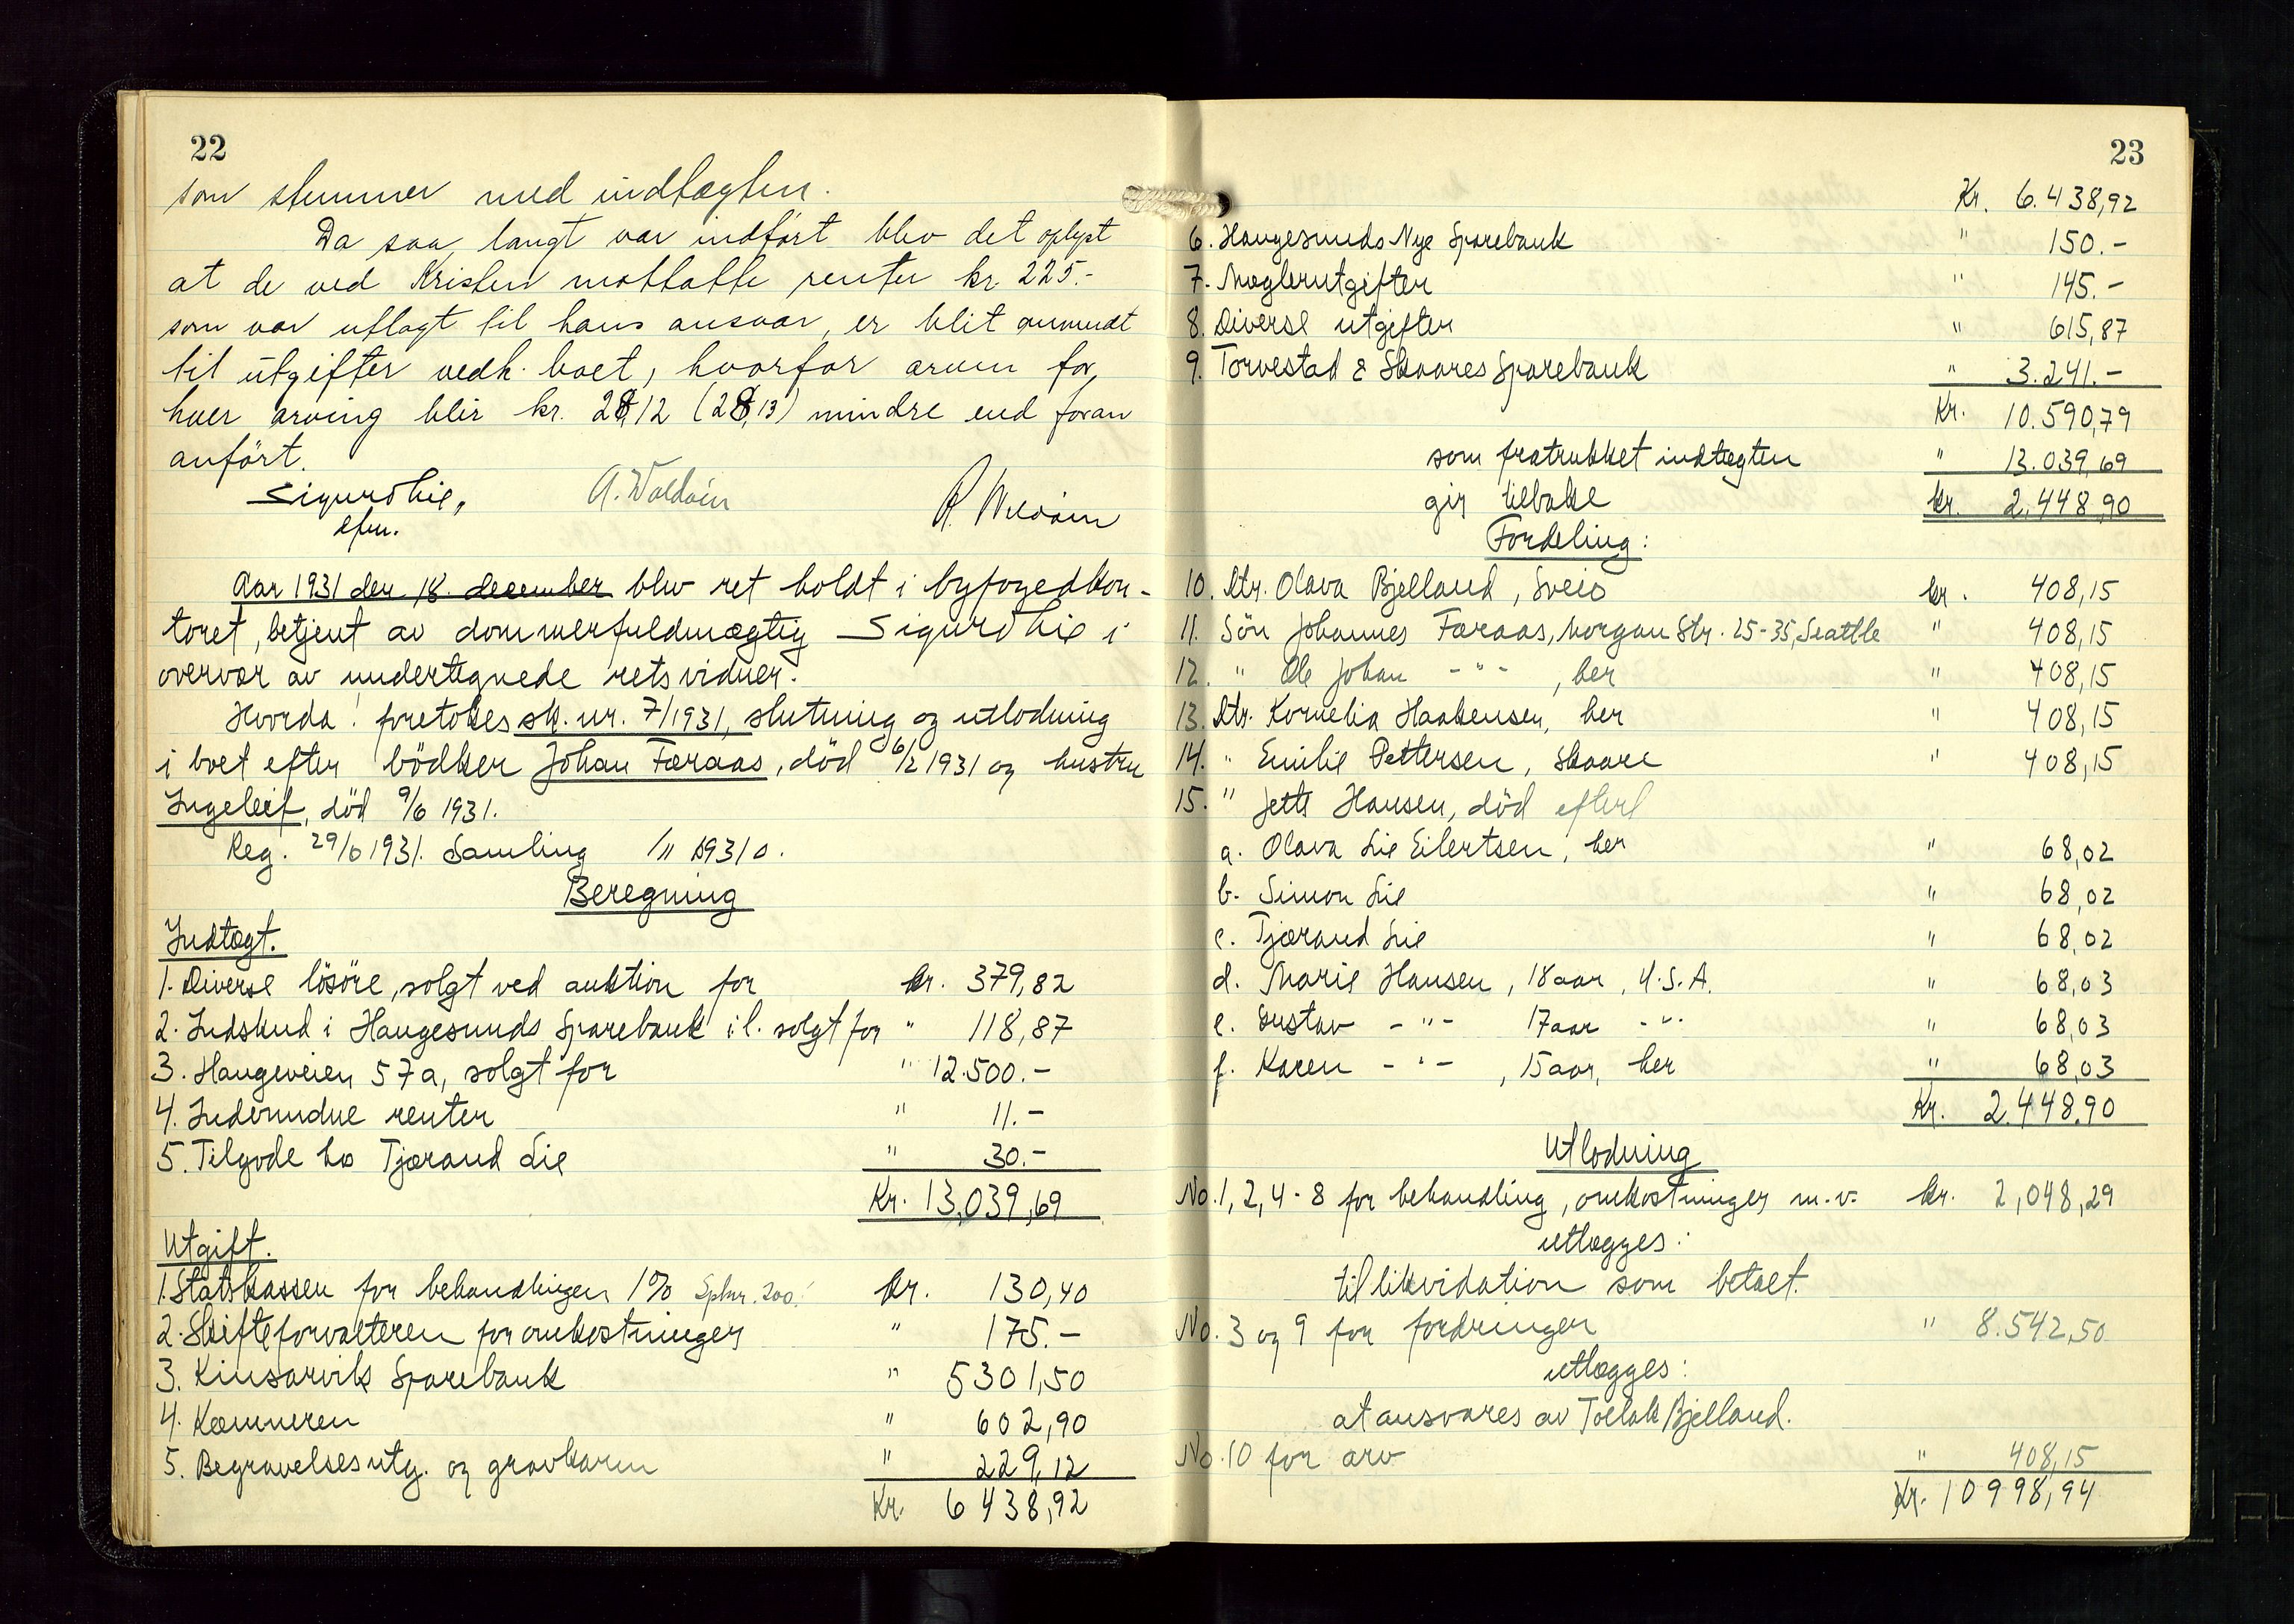 22
som stemmer med indtægten.
Da saa langt var indført blev det oplyst
at de ved Kristen mottatte renter kr. 225.-
som var utlagt til hans ansvar, er blit anvendt
til utgifter vedk. boet, hvorfor arven for
hver arving blir kr. 28,12 (28,13) mindre end foran
anført.
Sigurd Lie,
efm.
A. Waldvin
Aar 1931 den 18. december blev ret holdt i byfogedkon-
toret, betjent av dommerfuldmægtig Sigurd Lie i
overvær av undertegnede retsvidner.
Hvorda! foretokes sk. nr. 7/1931, slutning og utlodning
i boet efter bödker Johan Færaas, död 6/2 1931 og hustru
Ingeleif, död 9/6 1931.
Reg. 29/6 1931. Samling 1/11 1931 o.
Beregning
Indtægt.
1. Diverse lösöre, solgt ved auktion for kr. 379,82
2. Indskud i Haugesunds Sparebank i l. solgt for " 118,87
3. Haugeveien 57a, solgt for " 12.500.-
4. Indvundne renter " 11.-
5. Tilgode hos Tjærand Lie " 30.-
Kr. 13,039,69
Utgift.
1. Statskassen for behandlingen 1% Spkr. 200.- kr. 130,40
2. Skifteforvalteren for omkostninger " 175.-
3. Kinsarvik Sparebank " 5301,50
4. Kæmneren " 602,90
5. Begravelsesutg. og gravkarm " 229,12
Kr. 6438,92
23
Kr. 6.438,92
6. Haugesunds Nye Sparebank " 150.-
7. Mæglerutgifter " 145.-
8. Diverse utgifter " 615,87
9. Torvestad & Skaares Sparebank " 3.241.-
Kr. 10.590,79
som fratrukket indtægten " 13.039,69
gir tilbake kr. 2.448,90
Fordeling:
10. Dtr. Olava Bjelland, Sveio kr. 408,15
11. Sön Johannes Færaas, Morgan Str. 25-35, Seattle " 408,15
12. " Ole Johan - " - , her " 408,15
13. Dtr. Kornelia Haakensen, her " 408,15
14. " Emilie Pettersen, Skaare " 408,15
15. " Jette Hansen, död efterl
a. Olava Lie Eilertsen, her " 68,02
b. Simon Lie " 68,02
c. Tjærand Lie " 68,02
d. Marie Hansen, 18 aar, U.S.A. " 68,03
e. Gustav - " - 17 aar - " - " 68,03
f. Karen - " - , 15 aar, her " 68,03
Kr. 2.448,90
Utlodning
No. 1, 2, 4 - 8 for behandling, omkostninger m.v. kr. 2,048,29
utlægges:
til likvidation som betalt.
No. 3 og 9 for fordringer " 8.542,50
utlægges:
at ansvares av Tollak Bjelland.
No. 10 for arv " 408,15
Kr. 10998,94